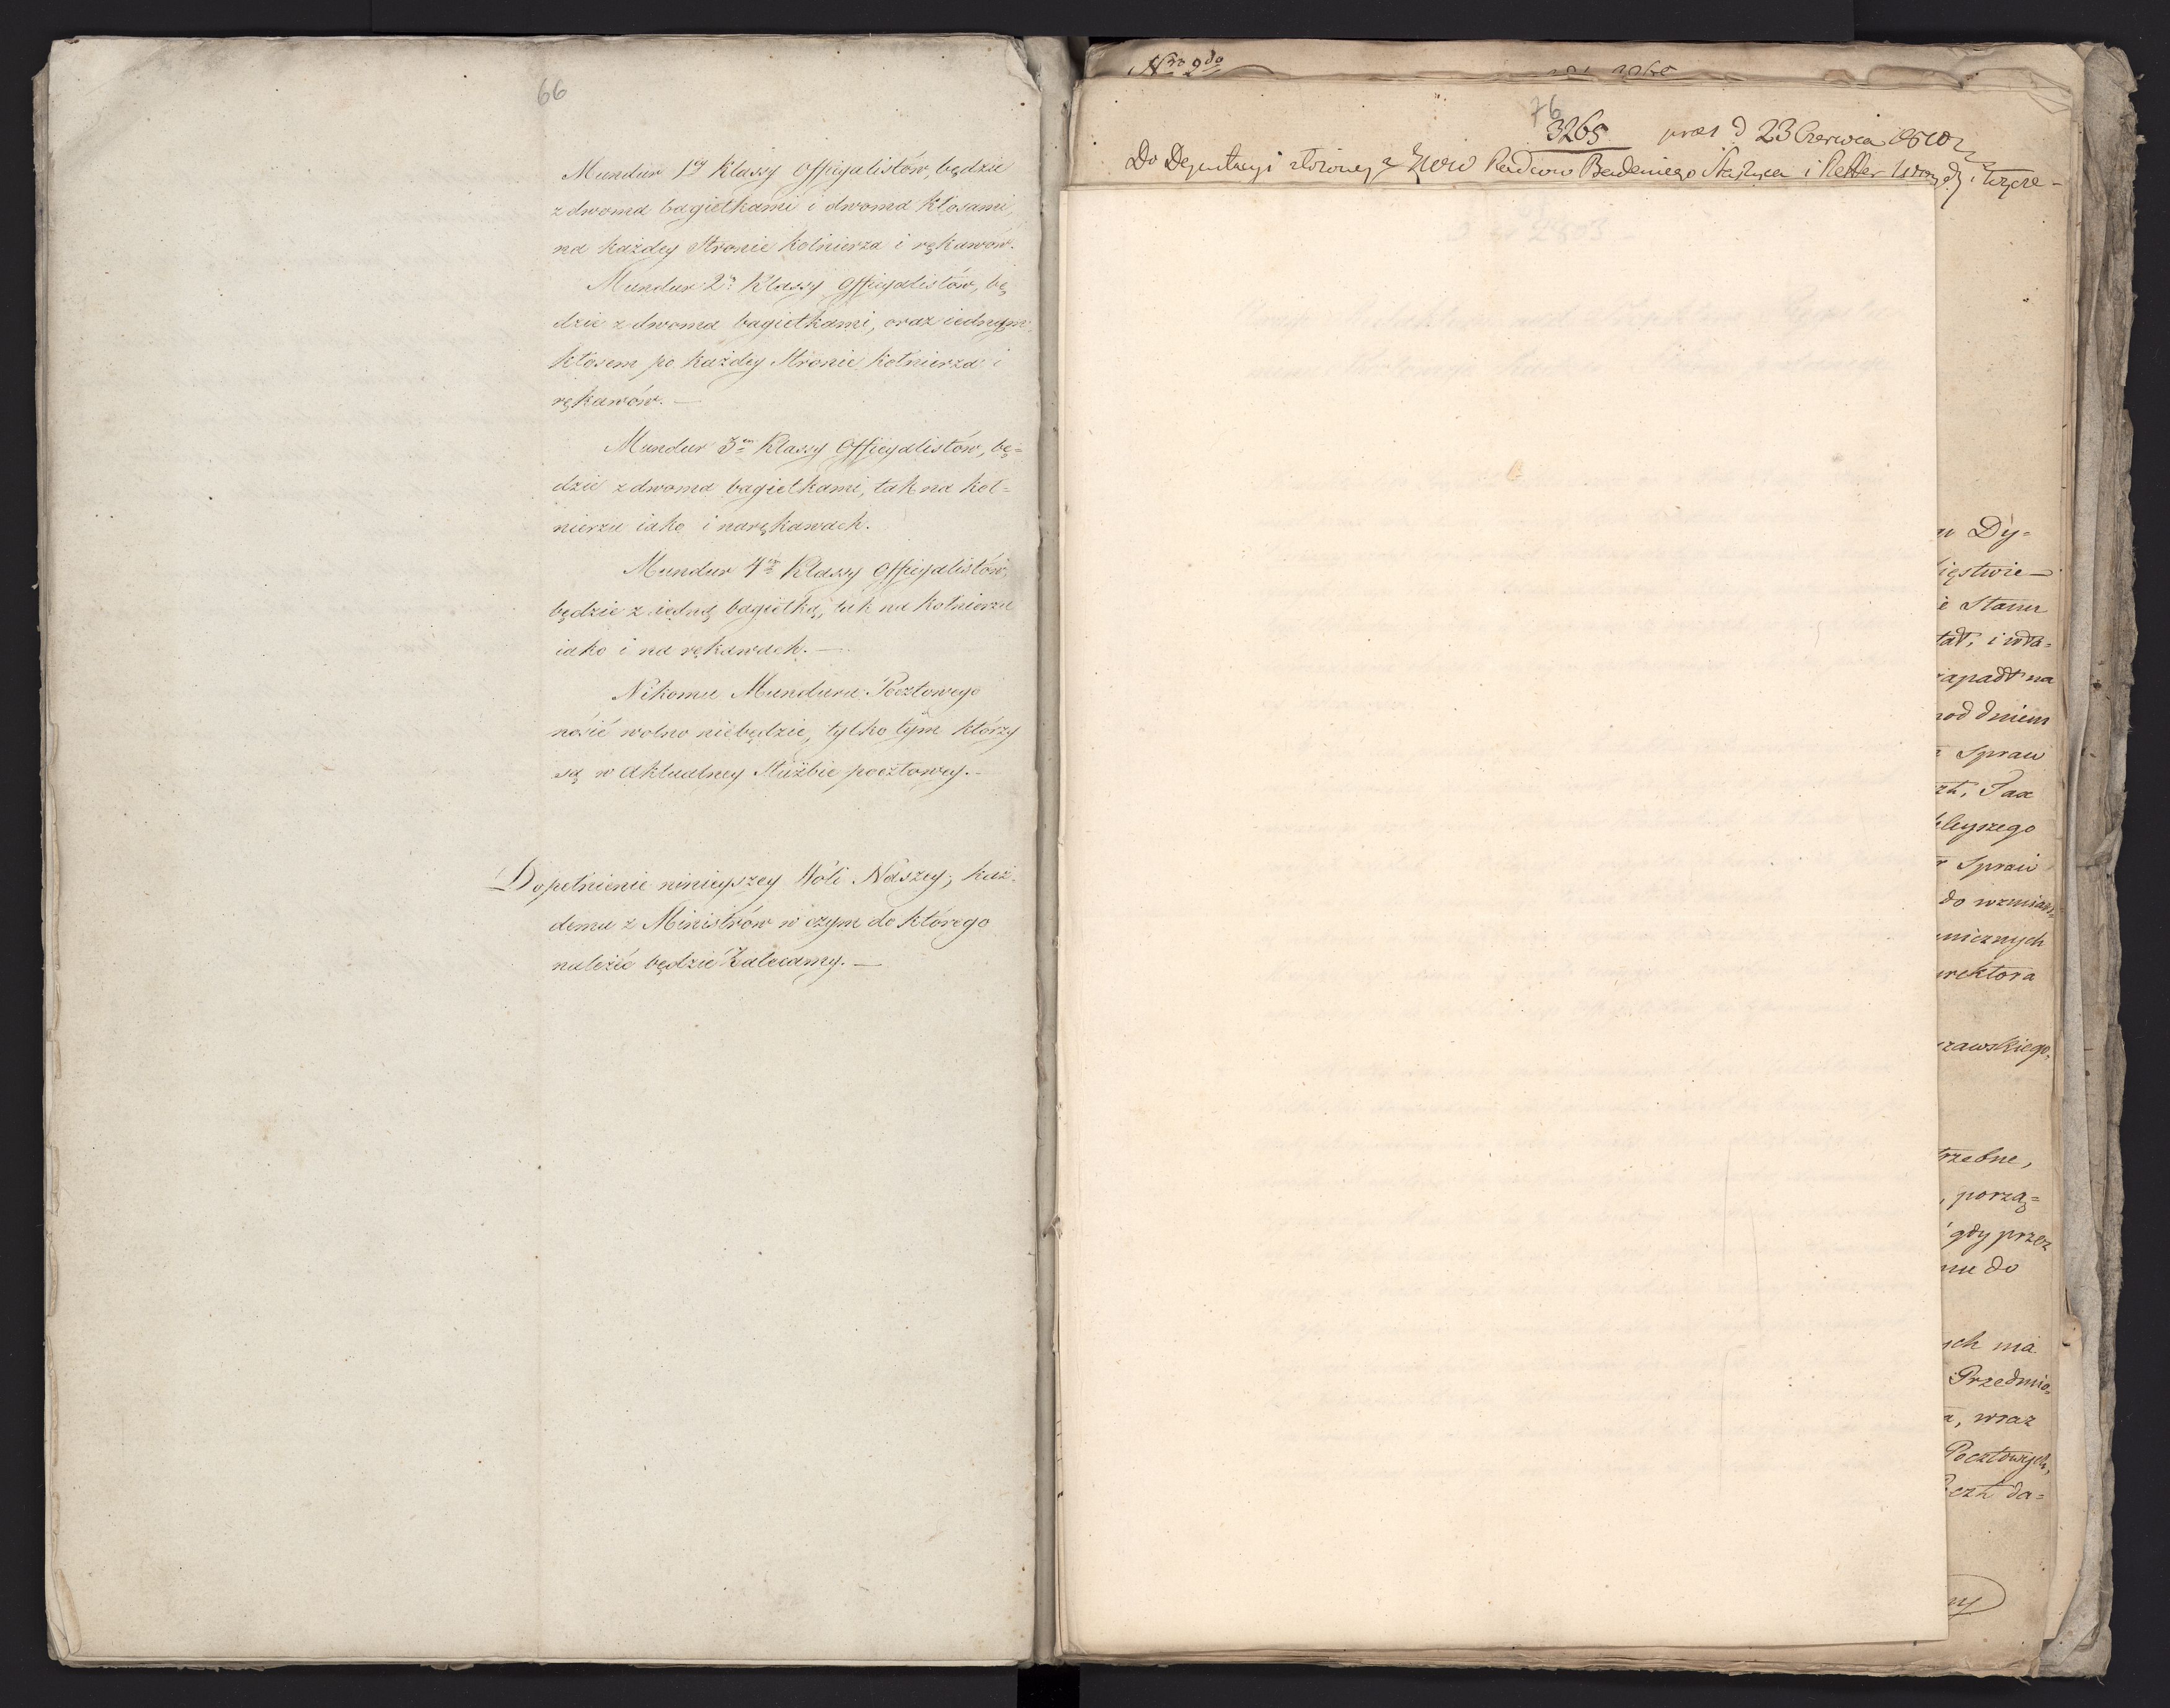 66
Mundur 1ey Klassy Officyalistów, będzie
z dwoma bagietkami i dwoma kłosami,
na każdey stronie kołnierza i rękawów.
Mundur 2ey Klassy Officyalistów, bę
dzie z dwoma bagietkami, oraz iednym
kłosem po każdey stronie kołnierza i
rękawów. —
Mundur 3ey Klassy Officyalistów, bę=
dzie z dwoma bagietkami, tak na koł=
nierzu iako i na rękawach.
Mundur 4ey Klassy Officyalistów,
będzie z iedną bagietką, tak na kołnierzu
iako i na rękawach. —
Nikomu Munduru Pocztowego
nosić wolno niebędzie, tylko tym którzy
są w aktualney służbie pocztowey. —
Dopełnienie ninieyszey Woli Naszey, każ=
demu z Ministrów w czym do którego
należeć będzie zalecamy. —
Nro 2do
76
3265 23 Czerwca 1810
Do Deputacyi złożoney z Radców Badeniego Staszyca i
Dy=
Stanu
zapadł na
pod dniem
Spraw
Tax
Spraw
do wzmian
rektora
porzą=
gdy przez
do
ych ma
Przedmio=
wraz
Pocztowych,
da=